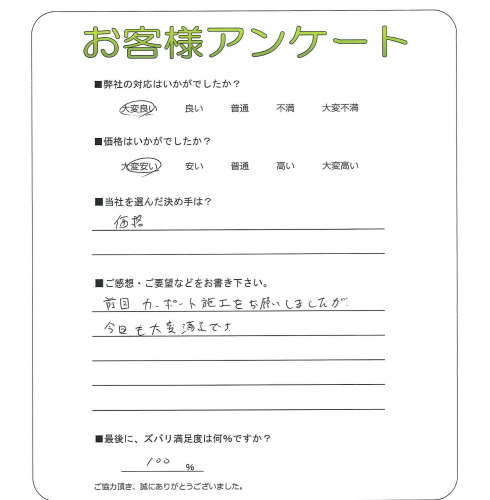 お客様アンケート
■弊社の対応はいかがでしたか？
大変良い 良い 普通 不満 大変不満
■価格はいかがでしたか？
大変安い 安い 普通 高い 大変高い
■当社を選んだ決め手は？
価格
■ご感想・ご要望などをお書き下さい。
前回 カーポート施工をお願いしましたが
今回も大変満足です
■最後に、ズバリ満足度は何％ですか？
100 %
ご協力頂き、誠にありがとうございました。